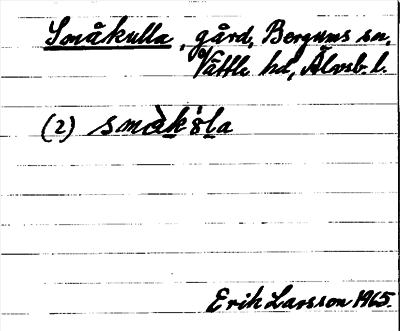 Småkulla, gård, Bergums sn,
Vättle hd, Älvsb. l.
(2) smàk'ꝏla
Erik Larsson 1965.